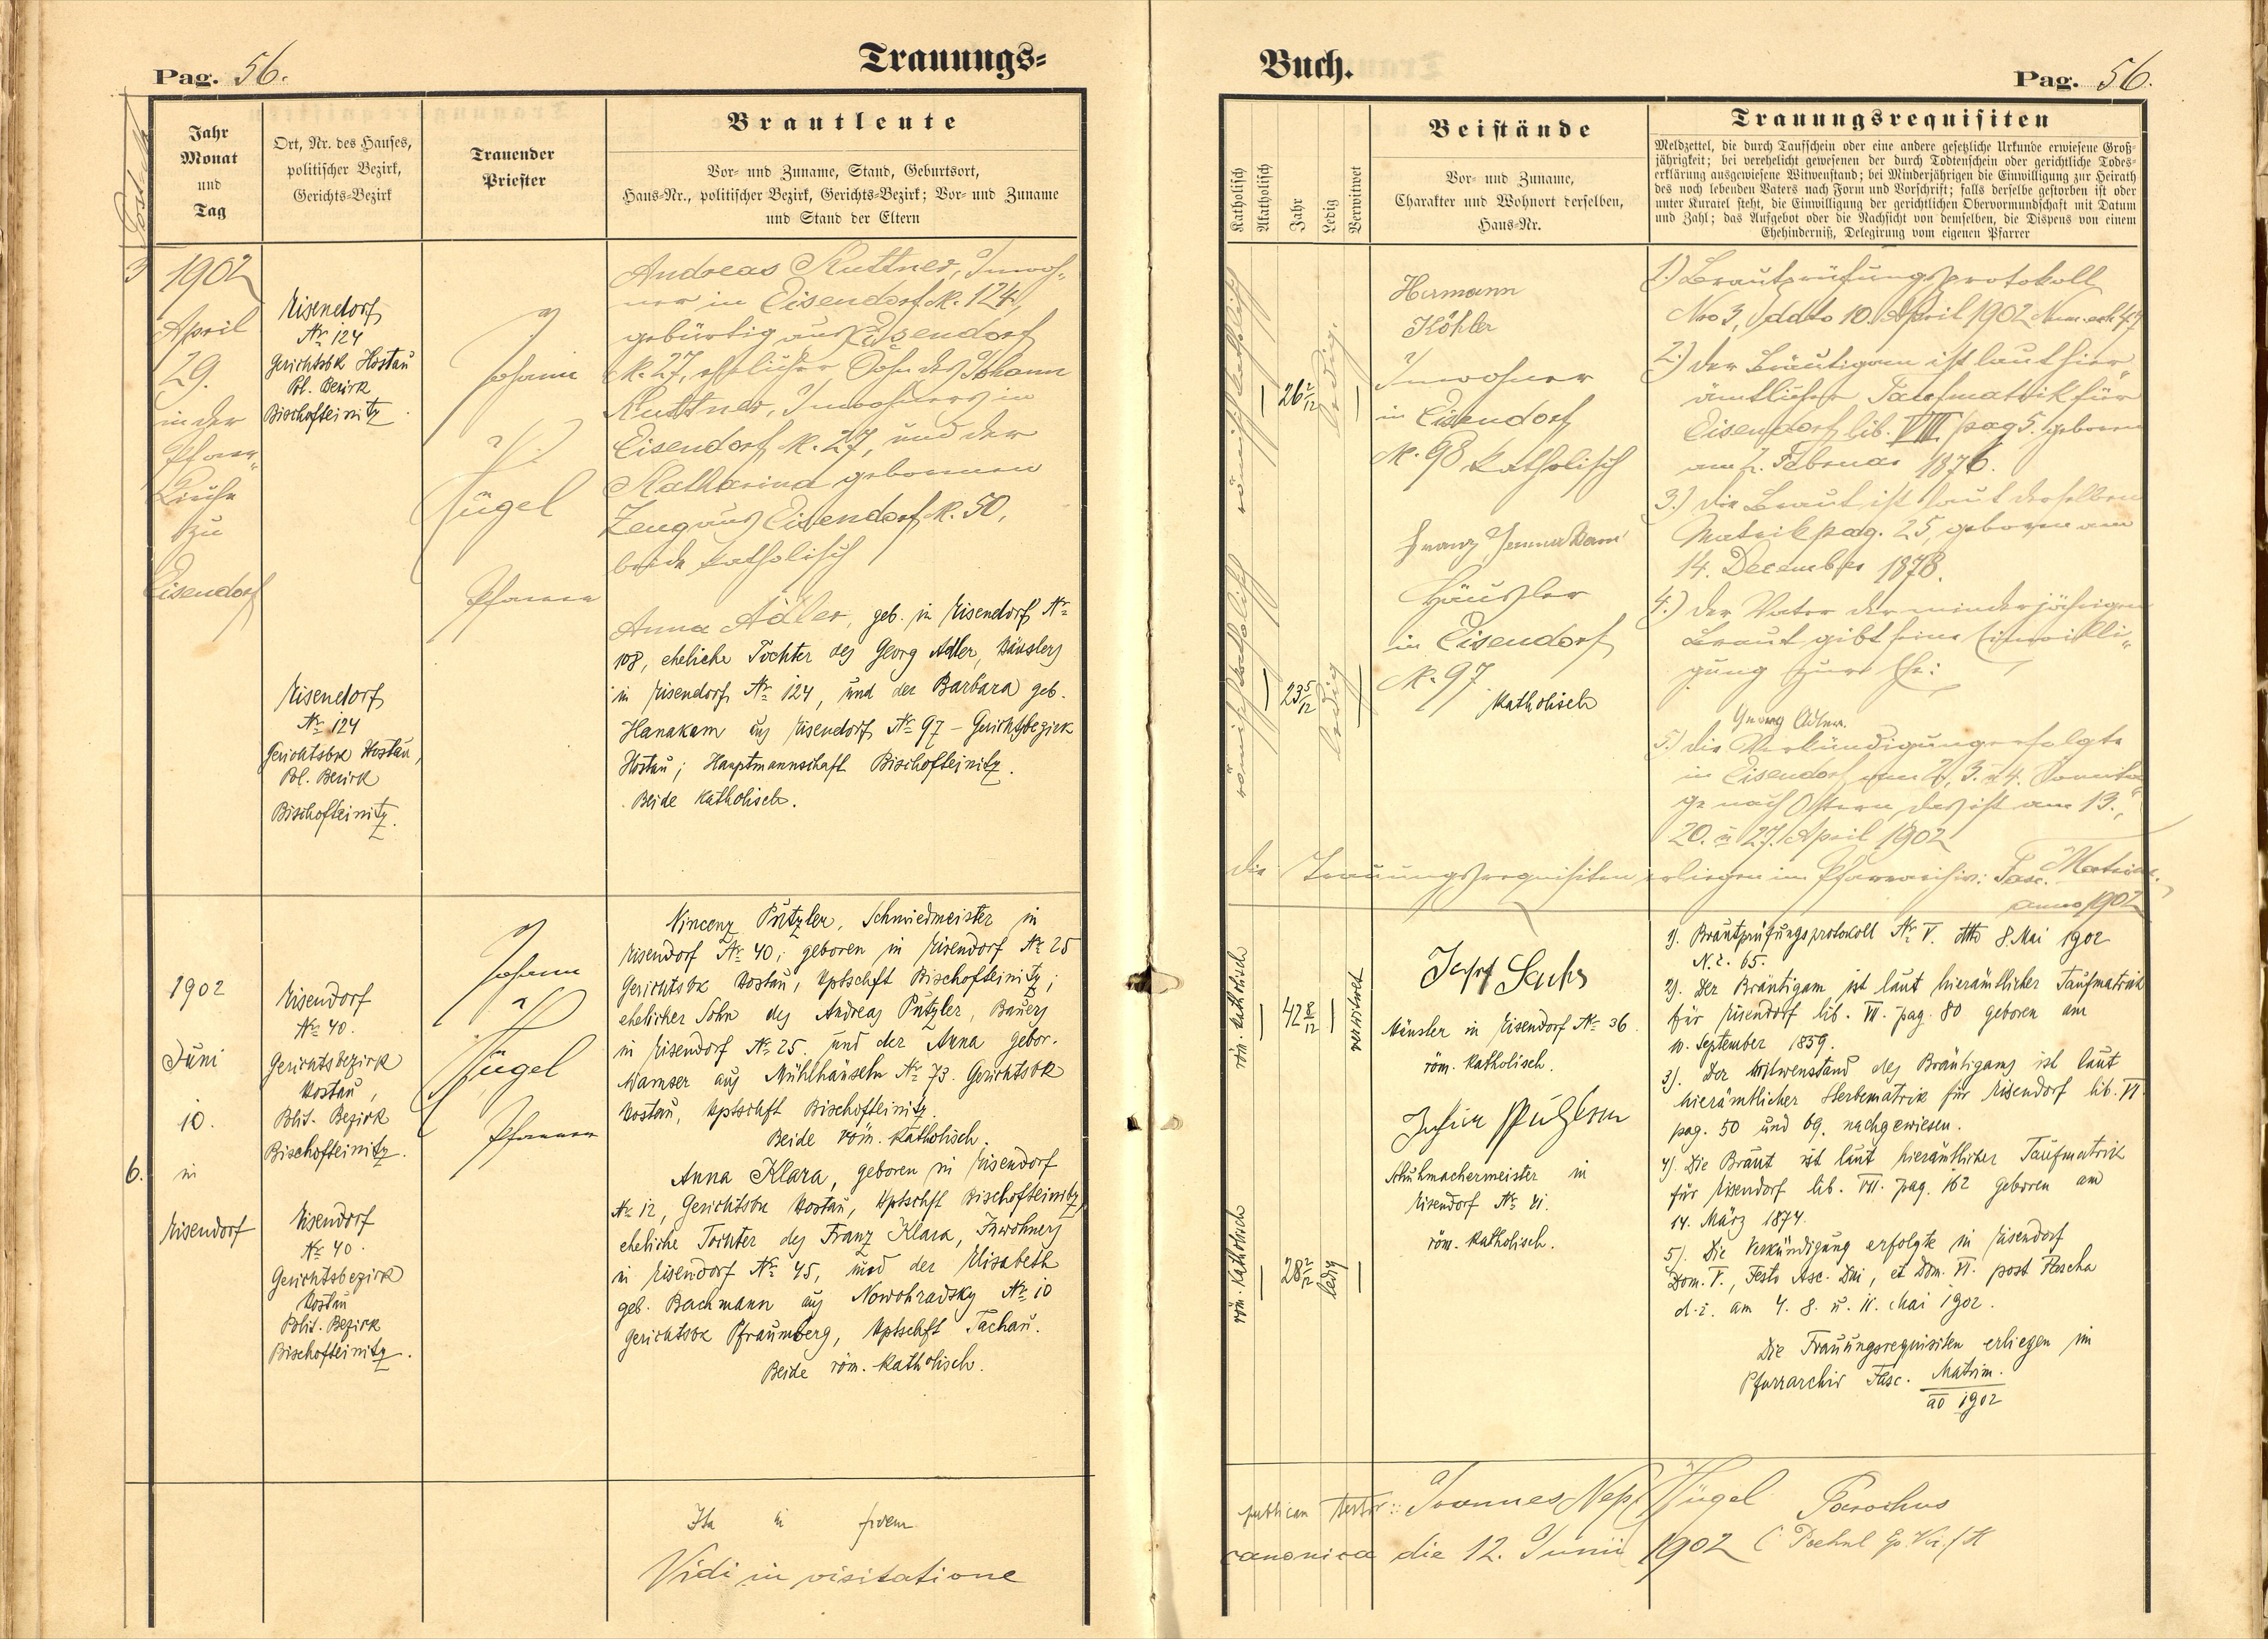 Trauungs-
Pag. 56.
Jahr
Monat
und
Tag
Ort, Nr. des Hauses,
politischer Bezirk,
Gerichts-Bezirk
Trauender
Priester
Brautleute
Vor- und Zuname, Stand, Geburtsort,
Haus-Nr., politischer Bezirk, Gerichts-Bezirk; Vor- und Zuname
und Stand der Eltern
3
1902
April
29.
in der
Pfarr-
kirche
zu
Eisendorf
Eisendorf
Nr. 124
Gerichtsbk Hostau
Pol. Bezirk
Bischofteinitz
Eisendorf
Nr. 124
Gerichtsbk Hostau,
Pol. Bezirk
Bischofteinitz.
Johann
N.
Hügel
Pfarrer
Andreas Kuttner, Inwoh-
ner in Eisendorf N. 124,
gebürtig aus Eisendorf
N. 27, ehelicher Sohn des Johann
Kuttner, Inwohners in
Eisendorf N. 27, und der
Katharina gebornen
Zeug aus Eisendorf N. 50,
beide katholisch
Anna Adler, geb. in Eisendorf Nr.
108, eheliche Tochter des Georg Adler, Häuslers
in Eisendorf Nr. 124, und der Barbara geb.
Hanakam aus Eisendorf Nr. 97 - Gerichtsbezirk
Hostau; Hauptmannschaft Bischofteinitz.
Beide katholisch.
6.
1902
Juni
10.
in
Eisendorf
Eisendorf
Nr. 40.
Gerichtsbezirk
Hostau,
Polit. Bezirk
Bischofteinitz.
Eisendorf
Nr. 40.
Gerichtsbezirk
Hostau
Polit. Bezirk
Bischofteinitz.
Johann
N.
Hügel
Pfarrer
Vincenz Pützler, Schmiedmeister in
Eisendorf Nr. 40; geboren in Eisendorf Nr. 25
Gerichtsbk Hostau, Hptschft Bischofteinitz;
ehelicher Sohn des Andreas Pützler, Bauers
in Eisendorf Nr. 25. und der Anna gebor.
Wamser aus Mühlhäuseln Nr. 73. Gerichtsbk
Hostau, Hptschft Bischofteinitz.
Beide röm. katholisch.
Anna Klara, geboren in Eisendorf
Nr. 12, Gerichtsbk Hostau, Hptschft Bischofteinitz,
eheliche Tochter des Franz Klara, Inwohners
in Eisendorf Nr. 45, und der Elisabeth
geb. Bachmann aus Nowohradsky Nr. 10
Gerichtsbk Pfraumberg, Hptschft Tachau.
Beide röm. katholisch.
Ita in fidem
Vidi in visitatione
Buch.
Pag. 56.
Katholisch
Akatholisch
Jahr
Ledig
Verwitwet
Beistände
Vor- und Zuname,
Charakter und Wohnort derselben,
Haus-Nr.
Trauungsrequisiten
Meldzettel, die durch Taufschein oder eine andere gesetzliche Urkunde erwiesene Groß-
jährigkeit; bei verehelicht gewesenen der durch Todtenschein oder gerichtliche Todes-
erklärung ausgewiesene Witwenstand; bei Minderjährigen die Einwilligung zur Heirath
des noch lebenden Vaters nach Form und Vorschrift; falls derselbe gestorben ist oder
unter Kuratel steht, die Einwilligung der gerichtlichen Obervormundschaft mit Datum
und Zahl; das Aufgebot oder die Nachsicht von demselben, die Dispens von einem
Ehehinderniß, Delegirung vom eigenen Pfarrer
römisch katholisch
26 2/12
ledig.
römisch katholisch
23 5/12
ledig
Hermann
Köhler
Inwohner
in Eisendorf
N. 98 katholisch
Franz
Häusler
in Eisendorf
N. 97
katholisch
1.) Brautprüfungsprotokoll
Nro 3, ddto 10. April 1902
2.) der Bräutigam ist laut hier-
ämtlicher Taufmatrik für
Eisendorf lib. VIII pag 5. geboren
am 2. Februar 1876.
3.) die Braut ist laut derselben
Matrik pag. 25, geboren am
14. December 1878.
4.) der Vater der minderjährigen
Braut gibt seine Einwilli-
gung zur Ehe:
Georg Adler.
5.) die Verkündigung erfolgte
in Eisendorf am 2., 3. u 4. Sonnta-
ge nach Ostern, das ist am 13.,
20. u 27. April 1902
die Trauungsrequisiten erliegen im Pfarrarchiv: Fasc. Matrim.
anno 1902
röm. katholisch
42 8/12
verwitwet
röm. katholisch
28 2/12
ledig
Josef Sachs
Häusler in Eisendorf Nr. 36.
röm. katholisch.
Schuhmachermeister in
Eisendorf Nr. 41.
röm. katholisch.
1). Brautprüfungsprotokoll Nr. V. dtto 8. Mai 1902
N. E. 65.
2). Der Bräutigam ist laut hierämtlicher Taufmatrik
für Eisendorf lib. VI. pag. 80 geboren am
10. September 1859.
3). Der Witwenstand des Bräutigams ist laut
hierämtlicher Sterbematrik für Eisendorf lib. VI
pag. 50 und 69. nachgewiesen.
4). Die Braut ist laut hierämtlicher Taufmatrik
für Eisendorf lib. VII. pag. 162 geboren am
14. März 1874.
5). Die Verkündigung erfolgte in Eisendorf
Dom. V., Festo Asc. Dni, et Dom. VI. post Pascha
d. i. am 4. 8. u. 11. Mai 1902.
Die Trauungsrequisiten erliegen im
Pfarrarchiv Fasc. Matrim.
ao 1902
publicam testor: Joannes Nep. Hügel Parochus
canonica die 12. Junii 1902